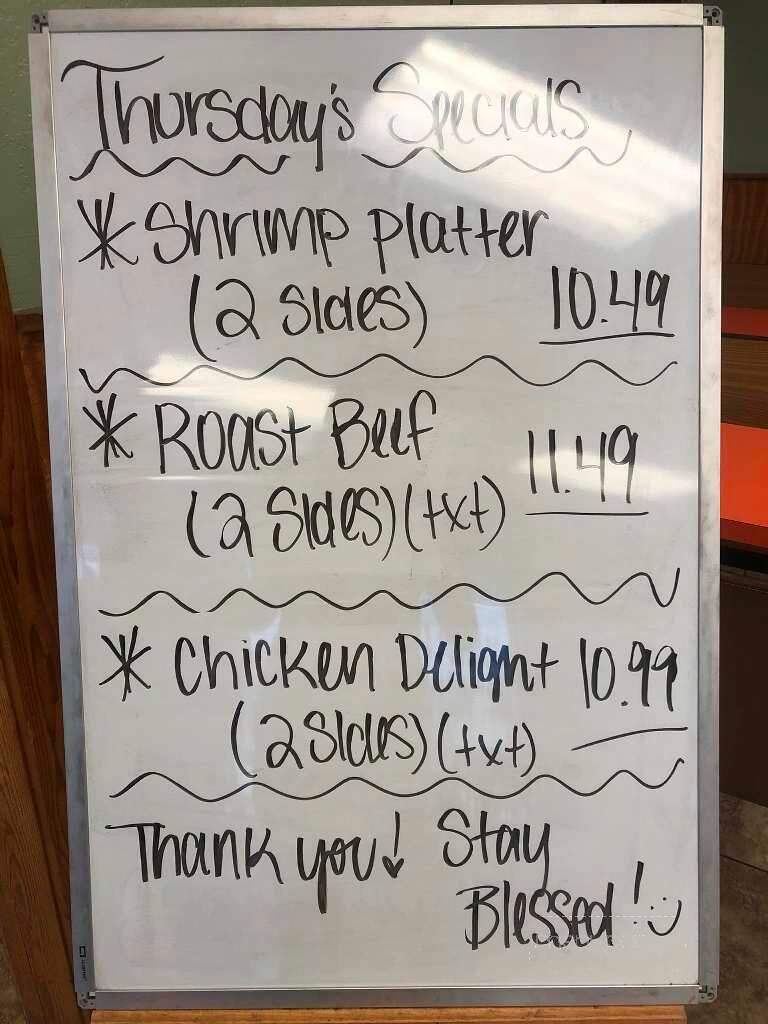 Thursday's Specials
* Shrimp Platter
(2 Sides) 10.49
* Roast Beef 11.49
(2 Sides) (txt)
* Chicken Delight 10.99
(2 Sides) (txt)
Thank you! Stay
Blessed! :)